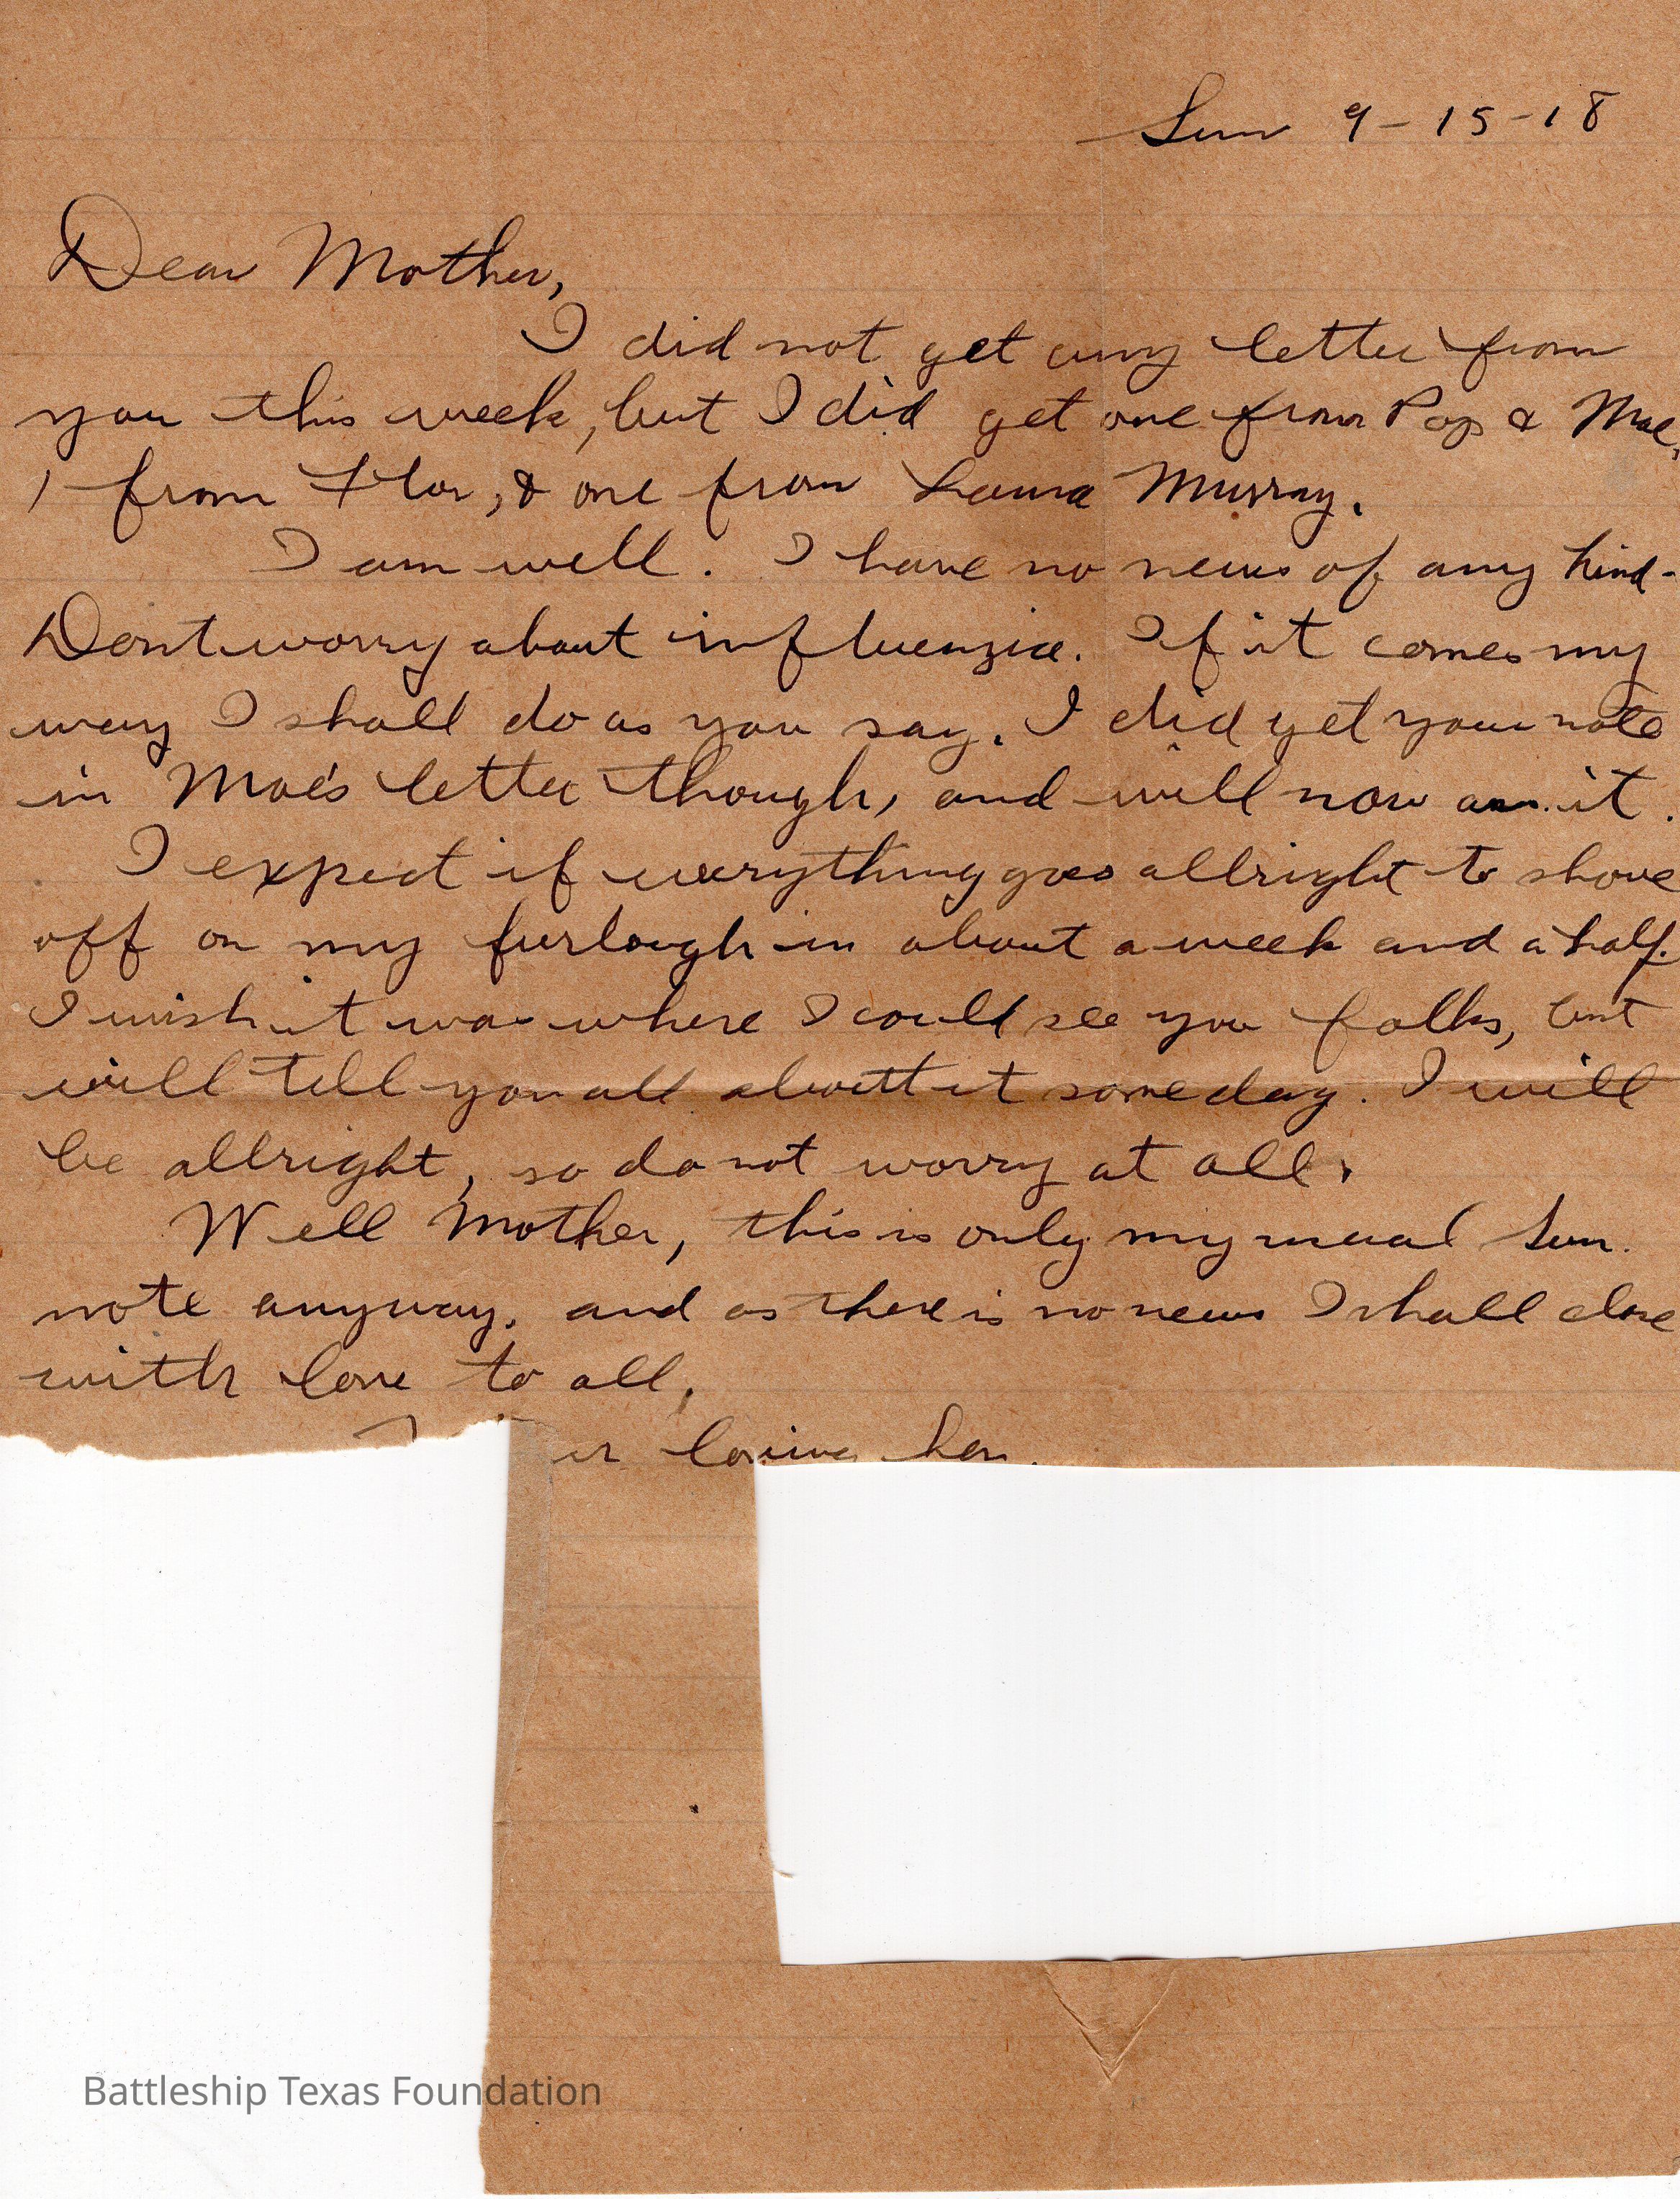 Sun 9-15-18
Dear Mother,
I did not get any letter from
you this week, but I did get one from Pop & Mae,
1 from Flor, & one from Laura Murray.
I am well. I have no news of any kind-
Dont worry about influenzia. If it comes my
way I shall do as you say. I did get your note
in Mae's letter though, and will now ans. it.
I expect if everything goes allright to shove
off on my furlough in about a week and a half.
I wish it was where I could see you folks, but
will tell you all about it some day. I will
be allright, so do not worry at all.
Well Mother, this is only my usual Sun.
note anyway. and as there is no news I shall close
with love to all.
loving Son.
Battleship Texas Foundation